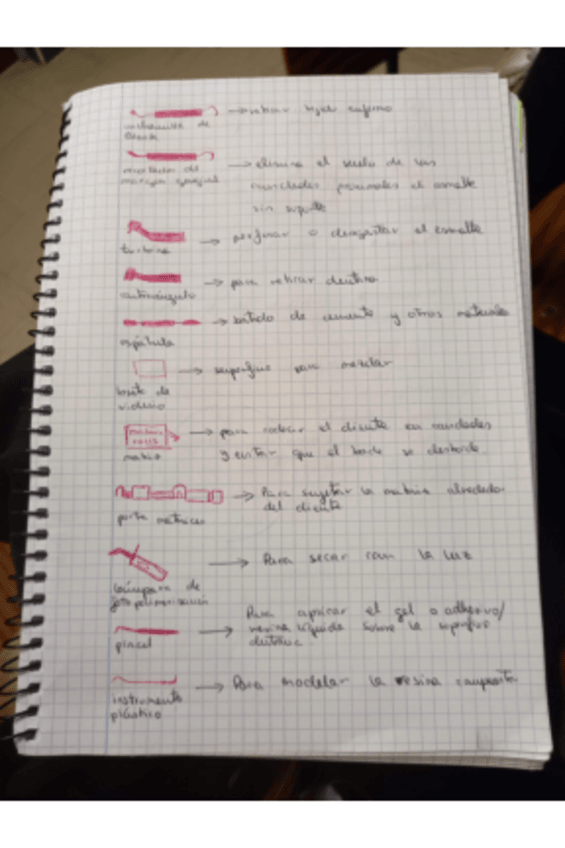 → retirar tejido enfermo
de
recortador del
margen gingival
→ elimina el suelo de las
cavidades proximales el esmalte
sin soporte
turbina
→ perforar o desgastar el esmalte
contraángulo
→ para retirar dentina
espátula
→ batido de cemento y otros materiales
loseta de
vidrio
→ superficie para mezclar
matriz
→ para rodear el diente en cavidades
y evitar que el borde se desborde
porta matrices
→ Para sujetar la matriz alrededor
del diente
lámpara de
fotopolimerización
→ Para secar con la luz
pincel
→ Para aplicar el gel o adhesivo/
resina líquida sobre la superficie
dentaria
instrumento
plástico
→ Para modelar la resina compuesta